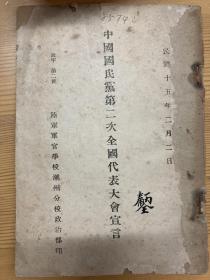 民國十五年二月二日
中國國民黨第二次全國代表大會宣言
陸軍軍官學校潮州分校政治部印